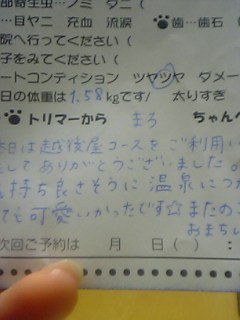 部寄生虫…ノミ ダニ (
目ヤニ 充血 流涙 歯…歯石
院へ行ってください (
子をみてください (
ートコンディション ツヤツヤ ダメー
日の体重は 1.58 kgです/ 太りすぎ
トリマーから まろ ちゃんへ
本日は越後屋コースをご利用い
してありがとうございました。
持ち良さそうに温泉につか
ても可愛いかったです☆またのご
おまちし
次回ご予約は 月 日( ) :